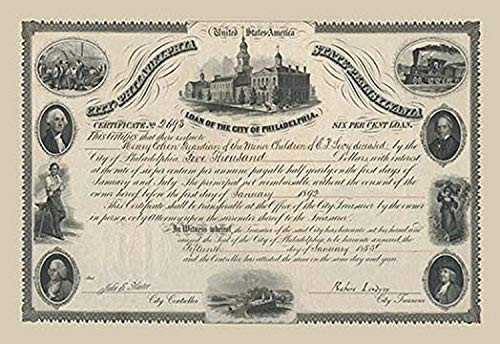 United States of America
CITY OF PHILADELPHIA STATE OF PENNSYLVANIA
LOAN OF THE CITY OF PHILADELPHIA.
CERTIFICATE No 2695 SIX PER CENT LOAN.
This Certifies that there is due to
Henry Cohen Guardian of the Minor Children of E J Levy deceased by the
City of Philadelphia Five Thousand Dollars with interest
at the rate of six per centum per annum, payable half yearly, on the first days of
January and July. The principal not reimbursable without the consent of the
owner before the first day of January
This Certificate shall be transferable at the Office of the City Treasurer by the owner
in person, or by Attorney upon the surrender thereof to the Treasurer.
In Witness whereof, the Treasurer of the said City has hereunto set his hand and
caused the Seal of the City of Philadelphia, to be hereunto annexed, the
Fifteenth day of January
and the Controller has attested the same on the same day and year.
City Controller City Treasurer